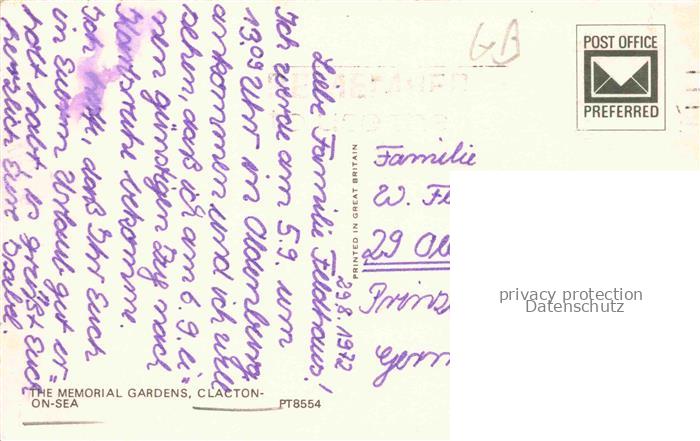 GB
POST OFFICE
PREFERRED
REMEMBER
29.8.1972
Liebe Familie Feldhaus!
Ich werde am 5.9. um
13.09 Uhr in Oldenburg
ankommen und ich will
sehen, daß ich am 6.9. ei=
nen günstigen Zug nach
bekomme.
Ich hoffe, daß Ihr Euch
in Eurem Urlaub gut er=
holt habt. Es grüßt Euch
herzlich Eure
PRINTED IN GREAT BRITAIN
Familie
W. F
29 Ol
Prinz
Germ
privacy protection
Datenschutz
THE MEMORIAL GARDENS, CLACTON-
ON-SEA
PT8554